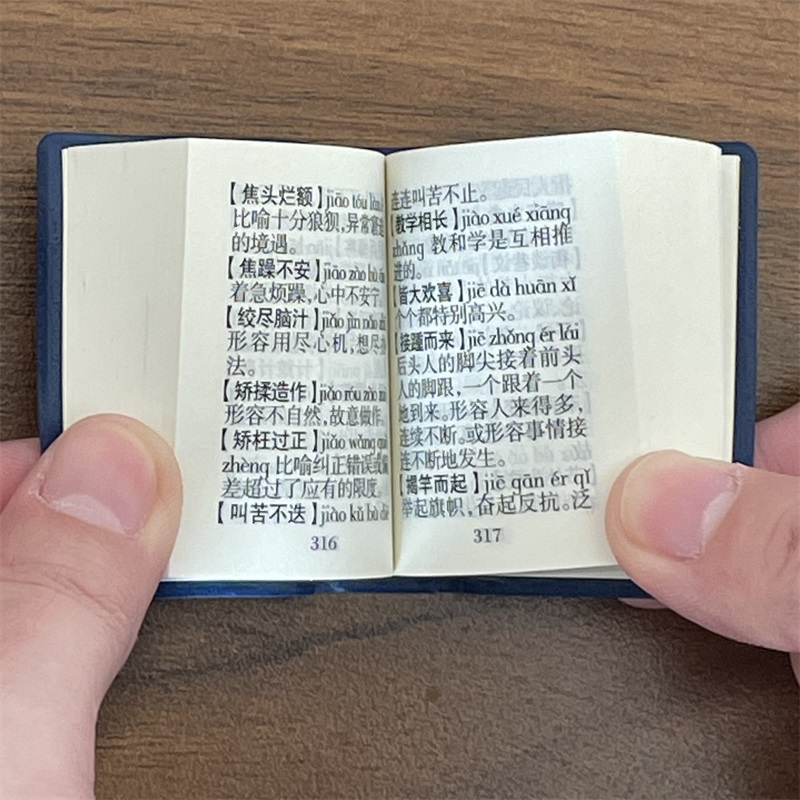 【焦头烂额】jiāo tóu làn
比喻十分狼狈,异常窘迫
的境遇。
【焦躁不安】jiāo zào bù ān
着急烦躁,心中不安宁。
【绞尽脑汁】jiǎo jìn nǎo
形容用尽心机,想尽办
法。
【矫揉造作】jiǎo róu zào
形容不自然,故意做作。
【矫枉过正】jiǎo wǎng guò
zhèng 比喻纠正错误或偏
差超过了应有的限度。
【叫苦不迭】jiào kǔ bù dié
316
连连叫苦不止。
【教学相长】jiào xué xiāng
zhǎng 教和学是互相推
进的。
【皆大欢喜】jiē dà huān xǐ
个个都特别高兴。
【接踵而来】jiē zhǒng ér lái
后头人的脚尖接着前头
人的脚跟,一个跟着一个
地到来。形容人来得多,
连续不断。或形容事情接
连不断地发生。
【揭竿而起】jiē gān ér qǐ
举起旗帜,奋起反抗。泛
317